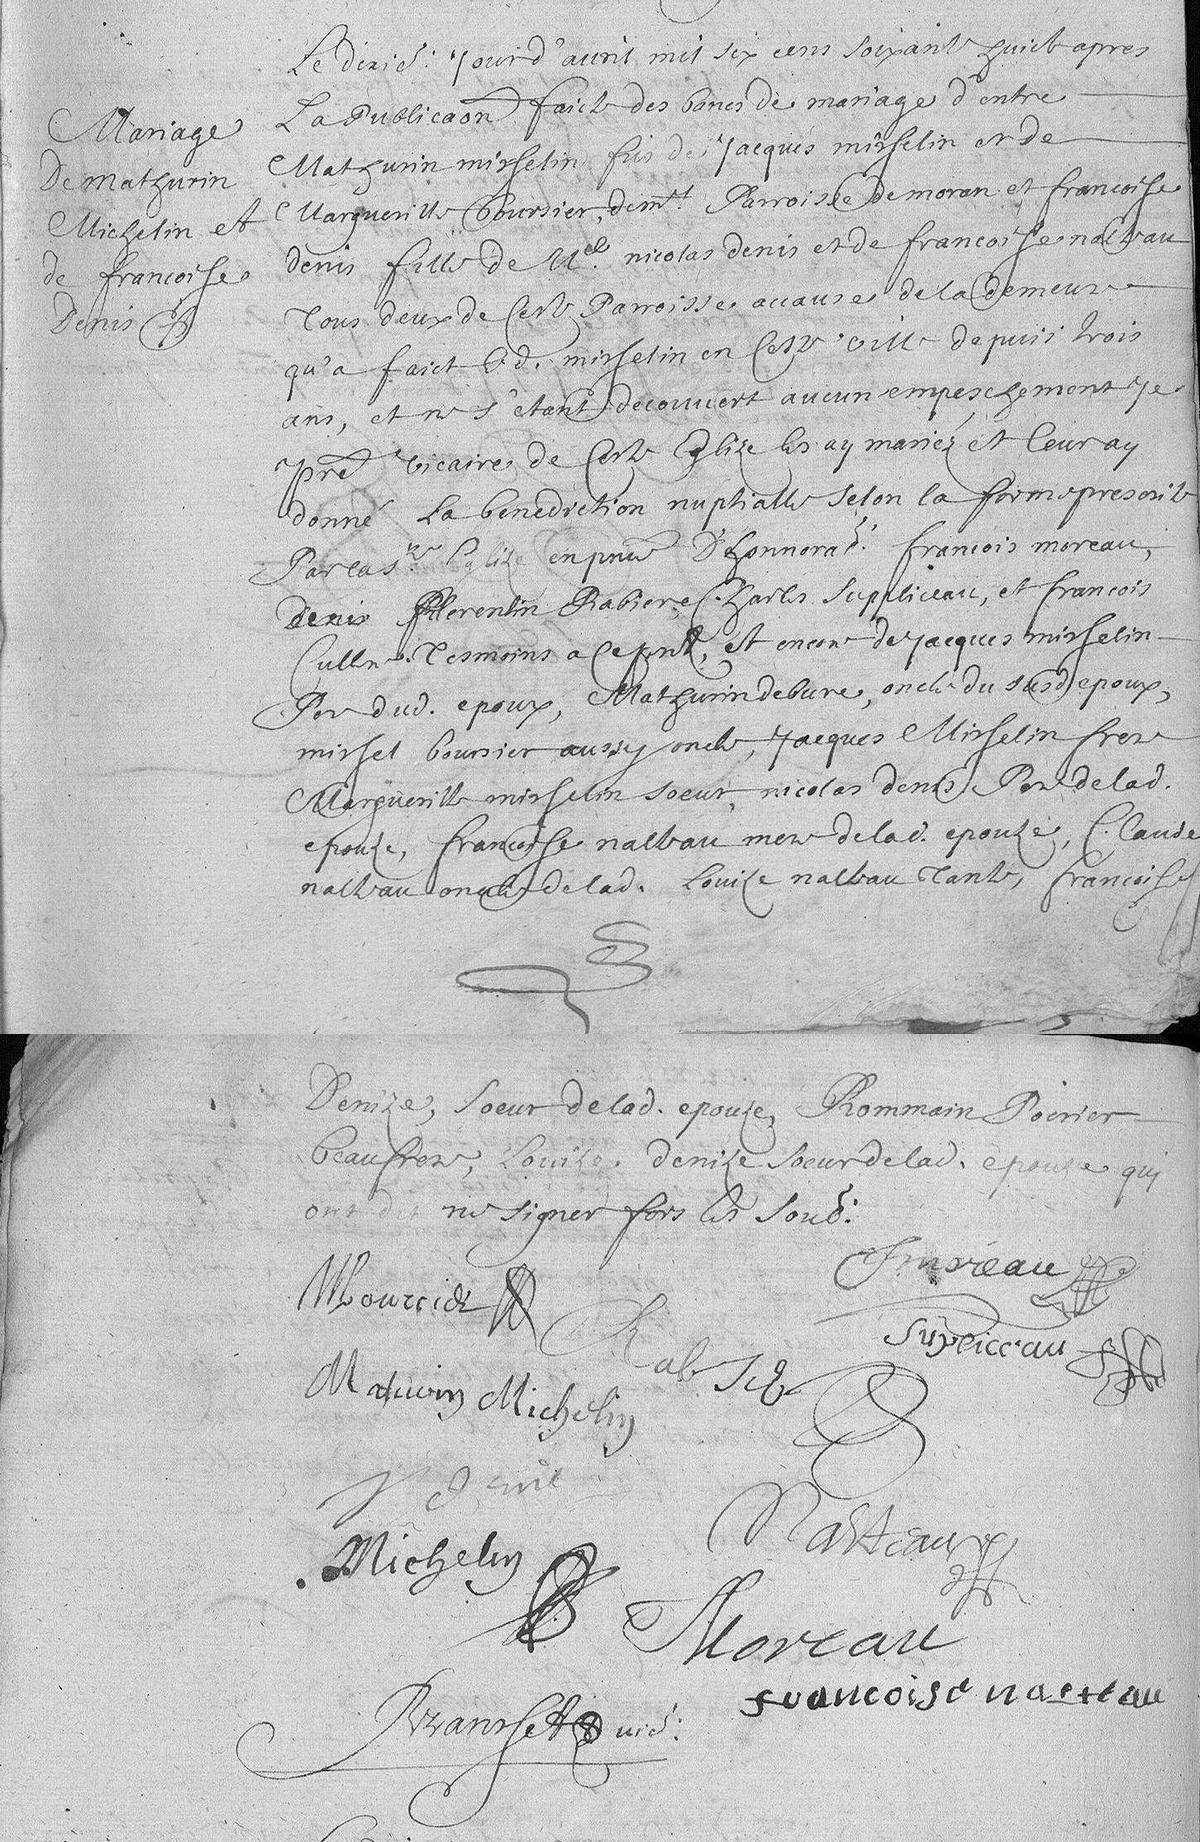 Mariage
De Mathurin
Michelin et
de francoise
Denis
Le dixie: Jour d'auril mil six cens soixante huict apres
La Publicaon faicte des bancs de mariage d'entre
Mathurin mishelin fils de Jacques mishelin et de
Marguerille boursier, demt Parroisse de moran et francoise
denis fille de Me nicolas denis et de francoise nalteau
Tous deux de Ceste Parroisse a cause de la demeure
qu'a faict led. mishelin en Ceste ville depuis trois
ans, et ne s'etant decouvert aucun empeschement Je
pre vicaire de Ceste Eglize les ay mariez et leur ay
donné la benediction nuptialle selon la forme prescrite
Par la ste Eglize en pnce D'honnorab: francois moreau,
Denis fflorentin Rabier, Charles Suppliceau, et francois
Cullere Tesmoins a ce pnt, et encore de Jacques mishelin
Pere dud. epoux, Mathurin debure, oncle du susd epoux,
mishel boursier aussy oncle, Jacques Mishelin frere
Marguerille mishelin soeur, nicolas denis Pere de lad.
epouze, francoise nalteau mere de lad. epouze, Claude
nalteau oncle de lad. Louize nalteau Tante, francoise
Denize, soeur de lad. epouze, Rommain Poirier
beaufrere, Louize denize soeur de lad. epouze qui
ont dit ne signer fors les soub:
Moreau
Mbourcier
Supliceau
Rabier
Maturin Michelin
N denis
Nalteau
Michelin
Moreau
francoise nalteau
vic: